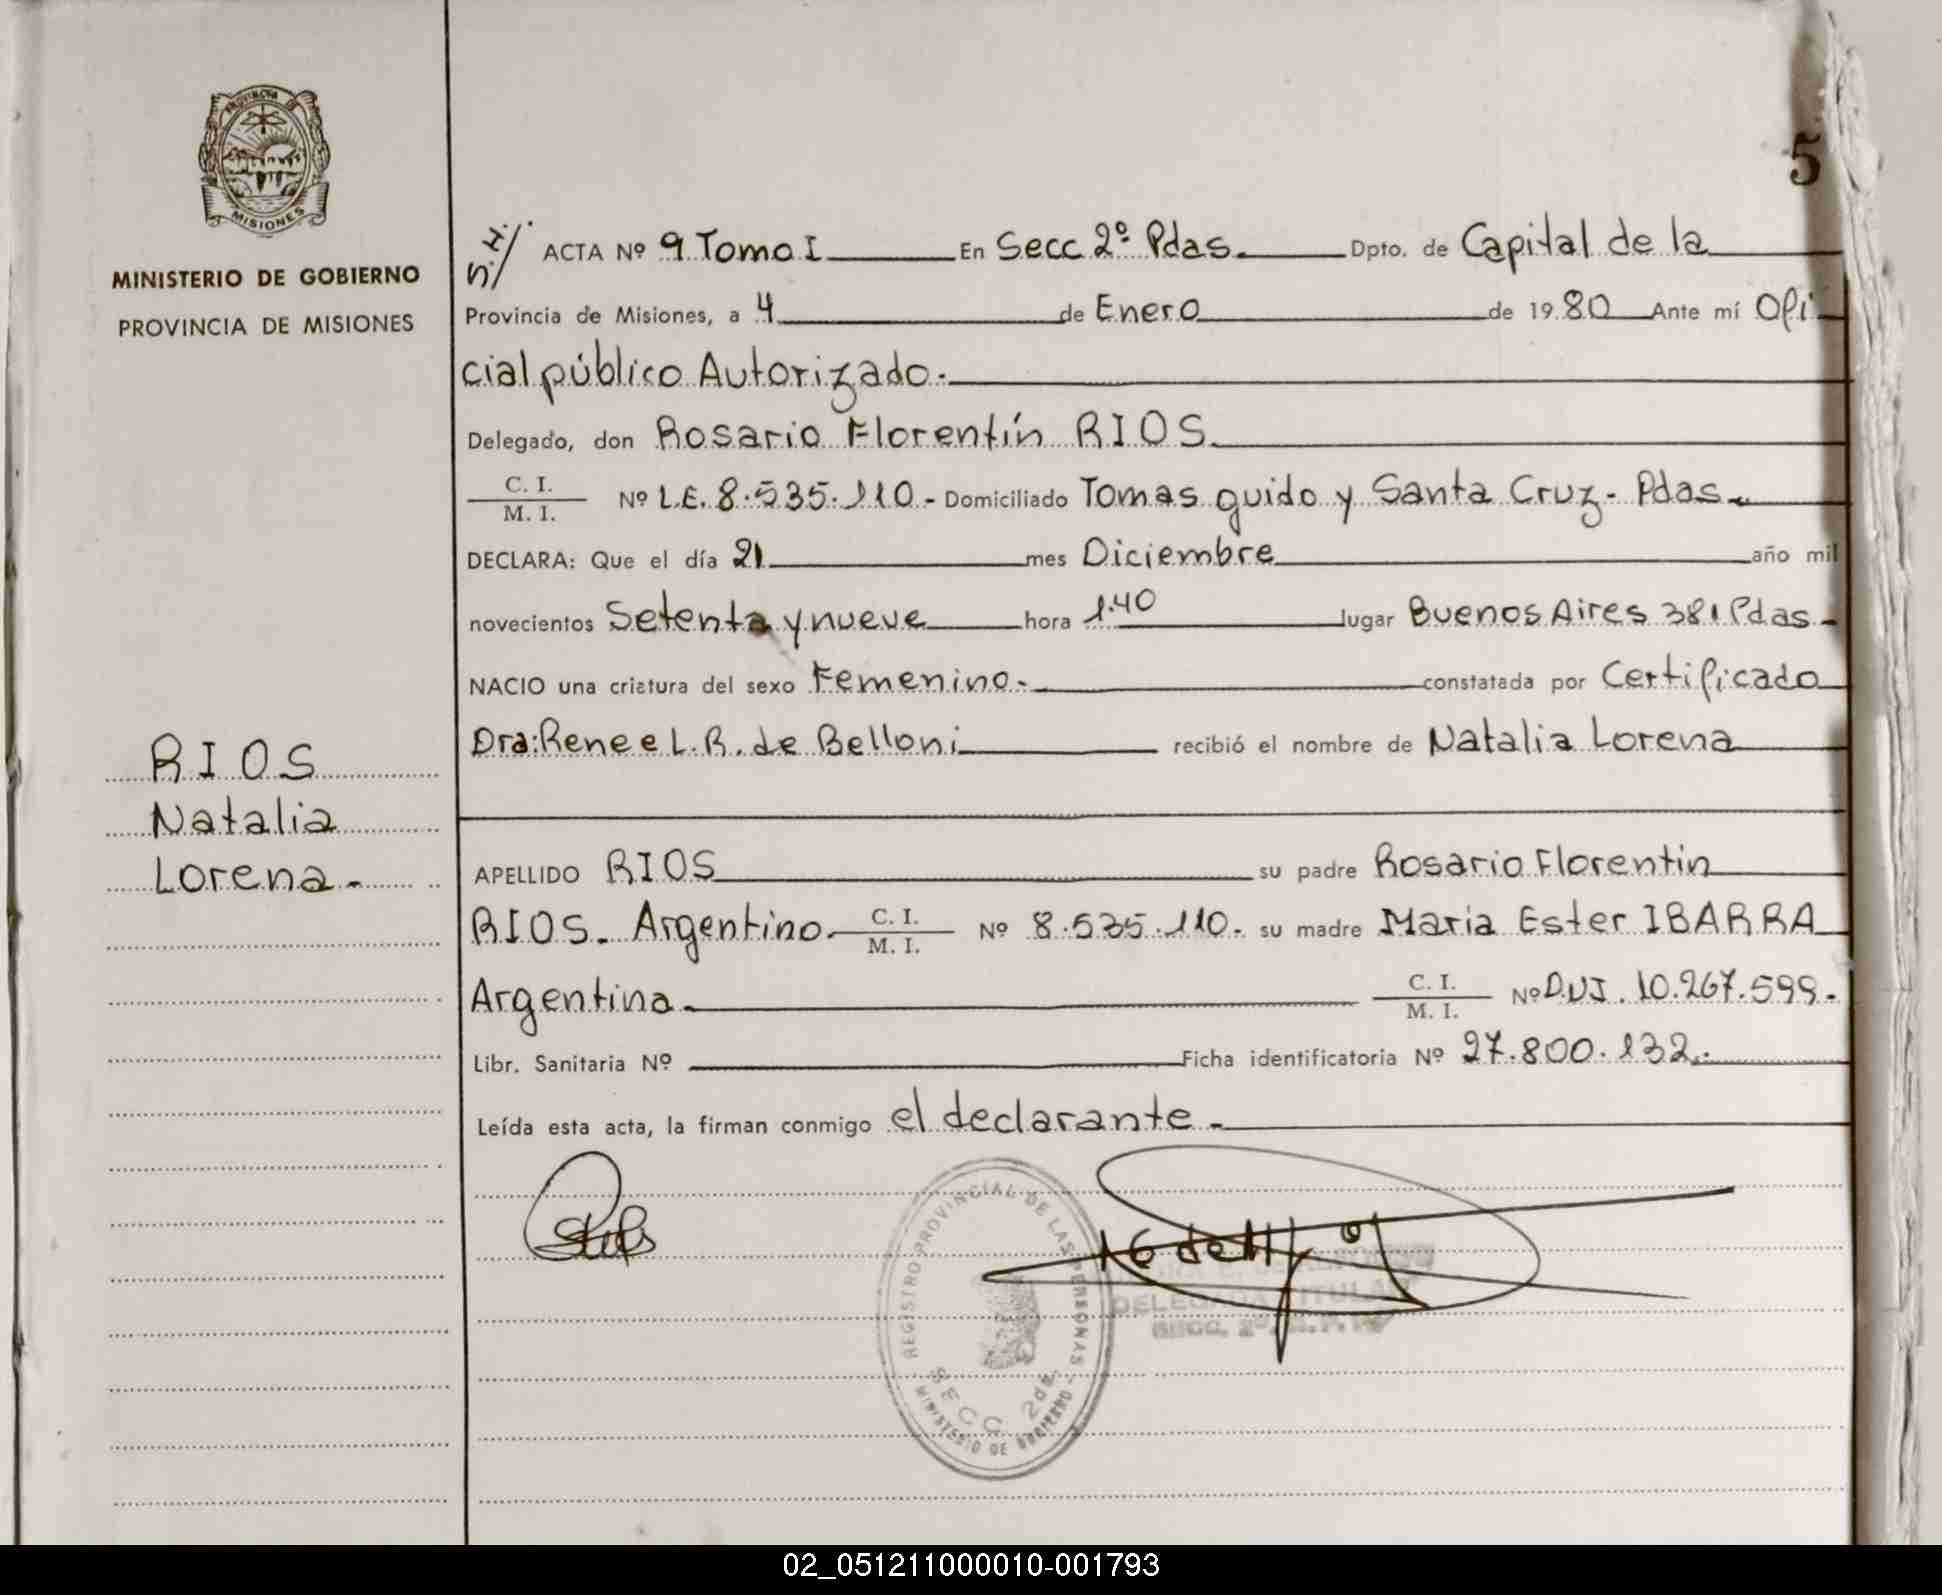 PROVINCIA DE
MISIONES
MINISTERIO DE GOBIERNO
PROVINCIA DE MISIONES
RIOS
Natalia
Lorena.-
5
S.H./ ACTA Nº 9 Tomo I En Secc 2º Pdas. Dpto. de Capital de la
Provincia de Misiones, a 4 de Enero de 1980 Ante mí Ofi
cial público Autorizado.-
Delegado, don Rosario Florentín RIOS.
C. I.
M. I. Nº L.E. 8.535.110.- Domiciliado Tomas guido y Santa Cruz- Pdas.
DECLARA: Que el día 21 mes Diciembre año mil
novecientos Setenta y nueve hora 1.40 lugar Buenos Aires 381 Pdas.
NACIO una criatura del sexo Femenino.- constatada por Certificado
Dra: Renee L. R. de Belloni recibió el nombre de Natalia Lorena
APELLIDO RIOS su padre Rosario Florentin
RIOS. Argentino. C. I.
M. I. Nº 8.535.110. su madre Maria Ester IBARRA
Argentina. C. I.
M. I. Nº D.N.I. 10.267.599.
Libr. Sanitaria Nº Ficha identificatoria Nº 27.800.132.
Leída esta acta, la firman conmigo el declarante.
REGISTRO PROVINCIAL DE LAS PERSONAS
SECC. 2da.
MINISTERIO DE GOBIERNO
DELEGADA TITULAR
02_051211000010-001793